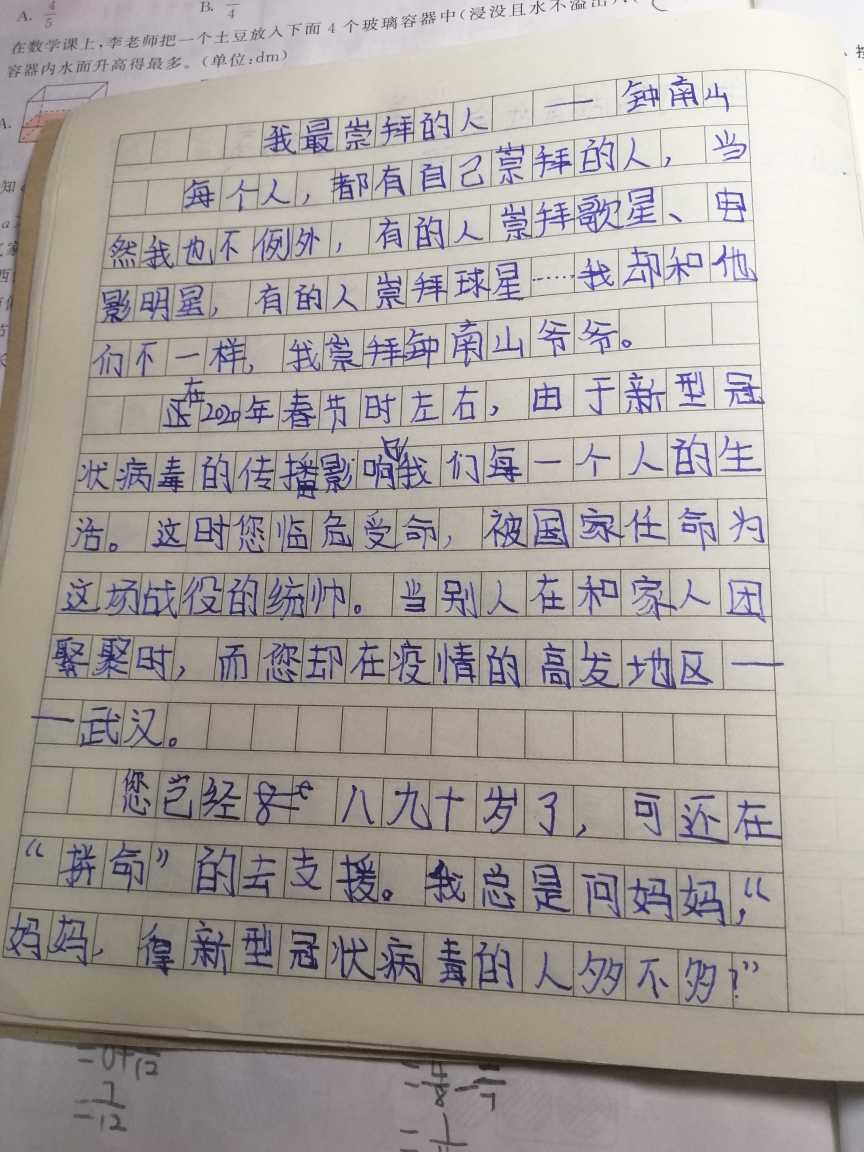 A. 4/5 B. —/4
在数学课上,李老师把一个土豆放入下面 4 个玻璃容器中(浸没且水不溢出),(
容器内水面升高得最多。(单位:dm)
A.
知
我最崇拜的人 — 钟南山
每个人，都有自己崇拜的人，当
然我也不例外，有的人崇拜歌星、电
影明星，有的人崇拜球星……我却和他
们不一样，我崇拜钟南山爷爷。
正在2020年春节时左右，由于新型冠
状病毒的传播影响我们每一个人的生
活。这时您临危受命，被国家任命为
这场战役的统帅。当别人在和家人团
聚聚时，而您却在疫情的高发地区—
—武汉。
您已经八九十岁了，可还在
“拼命”的去支援。我总是问妈妈，“
妈妈，得新型冠状病毒的人多不多？”
=0+/12
=7/12